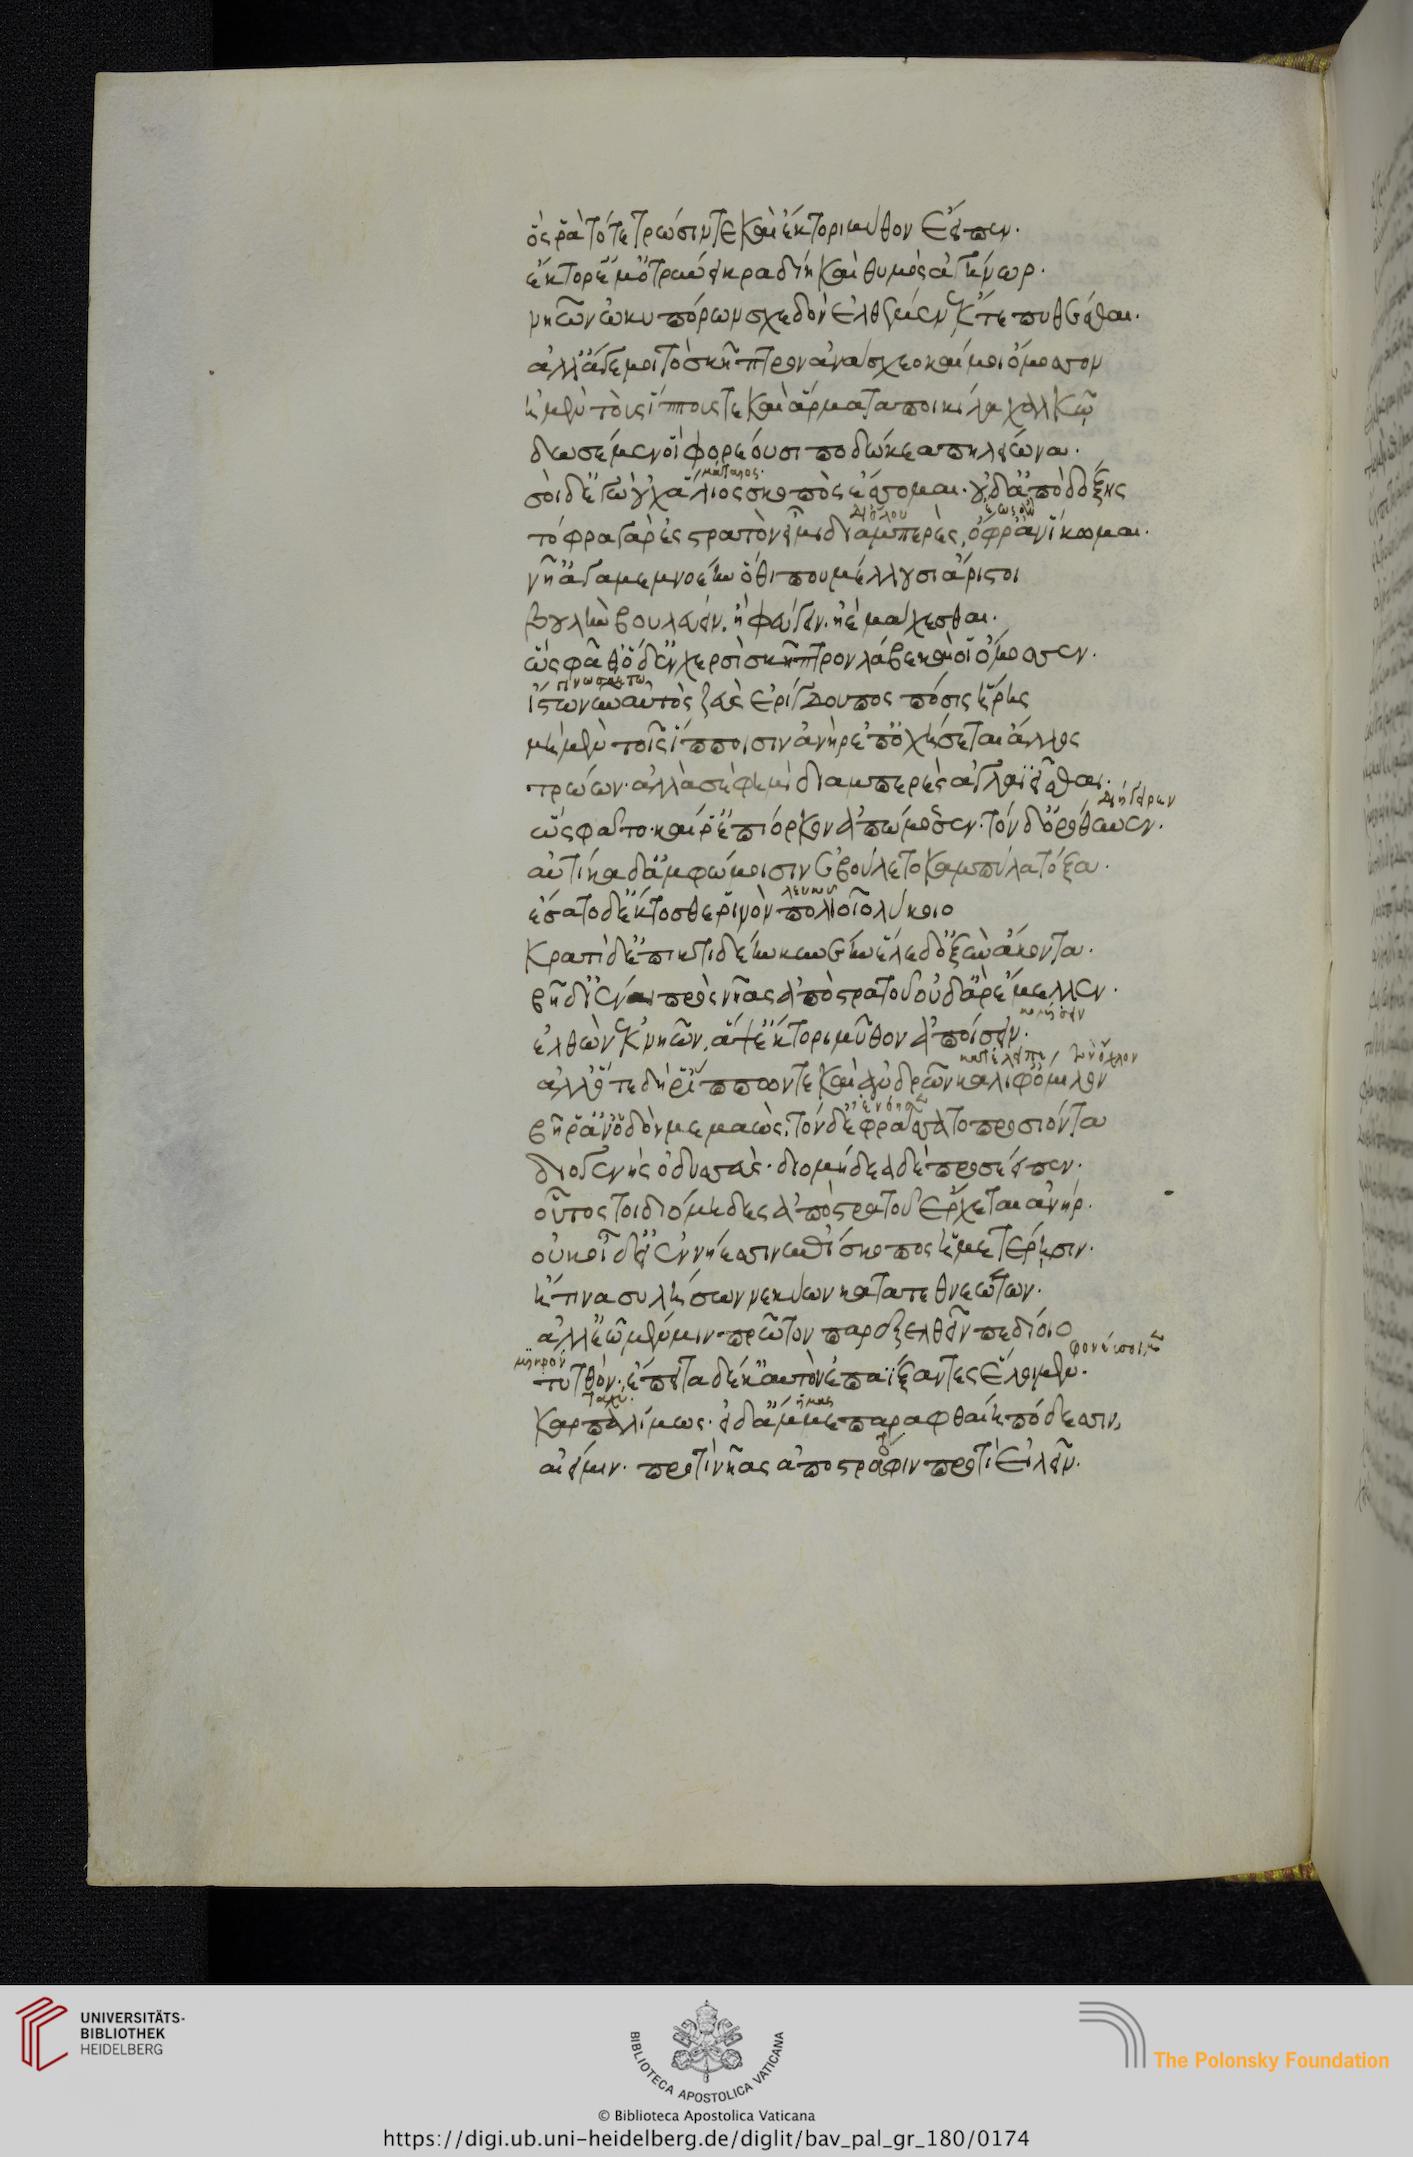 ὅς ῥα τότε τρωσίν τε καὶ ἕκτορι μῦθον ἔειπεν.
ἕκτορ ἔμ' ὀτρύνει κραδίη καὶ θυμὸς ἀγήνωρ.
νηῶν ὠκυπόρων σχεδὸν ἐλθέμεν ἔκ τε πυθέσθαι.
ἀλλ' ἄγε μοι τὸ σκῆπτρον ἀνάσχεο καί μοι ὄμοσσον
ἦ μὲν τοὺς ἵππους τε καὶ ἅρματα ποικίλα χαλκῷ
δωσέμεν οἳ φορέουσι ποδώκεα πηλείωνα.
μάταιος.
σοὶ δ' ἐγὼ οὐχ ἅλιος σκοπὸς ἔσσομαι. οὐδ' ἀπὸ δόξης
διόλου ἕως οὗ
τόφρα γὰρ ἐς στρατὸν εἶμι διαμπερὲς, ὄφρ' ἂν ἵκωμαι.
νῆ' ἀγαμεμνονέην ὅθι που μέλλουσι ἄριστοι
βουλὰς βουλεύειν. ἢ φεύγειν. ἠὲ μάχεσθαι.
ὣς φάθ' ὃ δ' ἐν χερσὶ σκῆπτρον λάβε καὶ οἱ ὄμοσσεν.
γινωσκέτω
ἴστω νῦν αὐτὸς ζεὺς ἐρίγδουπος πόσις ἥρης
μὴ μὲν τοῖς ἵπποισιν ἀνὴρ ἐποχήσεται ἄλλος
τρώων. ἀλλὰ σὲ φημὶ διαμπερὲς ἀγλαϊεῖσθαι.
διήγειρεν
ὣς φάτο. καί ῥ' ἐπίορκον ἀπώμοσεν. τὸν δ' ὀρόθυνεν.
αὐτίκα δ' ἀμφ' ὤμοισιν ἐβούλετο καμπύλα τόξα.
λευκοῦ
ἕσατο δ' ἔκτοσθε ῥινὸν πολιοῖο λύκοιο
κρατὶ δ' ἐπὶ κτιδέην κυνέην ἕλε δ' ὀξὺν ἄκοντα.
βῆ δ' ἰέναι πρὸς νῆας ἀπὸ στρατοῦ οὐδ' ἂρ ἔμελλεν.
κομίσειν
ἐλθὼν ἐκ νηῶν, ἂψ ἕκτορι μῦθον ἀποίσειν.
κατέλειπε τὸν ὄχλον
ἀλλ' ὅτε δή ῥ' ἵππων τε καὶ ἀνδρῶν κάλιφ' ὅμιλον
ἐνόησε
βῆ ῥ' ἀν' ὁδὸν μεμαώς. τὸν δὲ φράσατο προσιόντα
διογενὴς ὀδυσσεὺς. διομήδεα δὲ προσέειπεν.
οὗτός τοι διόμηδες ἀπὸ στρατοῦ ἔρχεται ἀνήρ.
οὐκ οἶδ' εἰ νήεσσιν ἐπίσκοπος ἡμετέρῃσιν.
ἤ τινα συλήσων νεκύων κατατεθνεώτων.
ἀλλ' ἐῶμεν μιν πρῶτον παρεξελθεῖν πεδίοιο
μικρόν φονεύσοιμεν
τυτθόν. ἔπειτα δέ κ' αὐτὸν ἐπαΐξαντες ἕλοιμεν.
ταχύ. ἡμᾶς
καρπαλίμως. εἰ δ' ἄμμε παραφθαίη πόδεσσιν,
αἰεί μιν. προτὶ νῆας ἀπὸ στρατόφιν προτὶ εἰλεῖν.
UNIVERSITÄTS-
BIBLIOTHEK
HEIDELBERG
BIBLIOTECA APOSTOLICA VATICANA
The Polonsky Foundation
© Biblioteca Apostolica Vaticana
https://digi.ub.uni-heidelberg.de/diglit/bav_pal_gr_180/0174